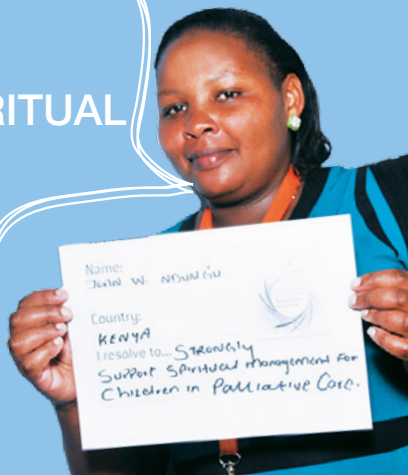 RITUAL
Name:
JOAN W. NDUNGU
Country:
KENYA
I resolve to... STRONGLY
Support Spiritual management for
Children in Palliative Care.